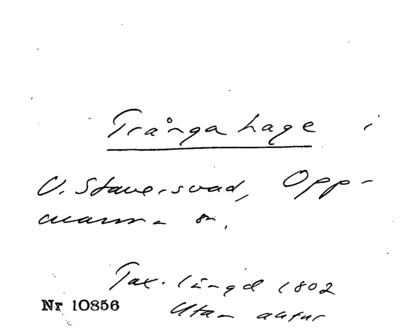 Trånga hage i
V. Staversvad, Opp-
manna sn.
Tax. längd 1802
Nr 10856
Utan antur